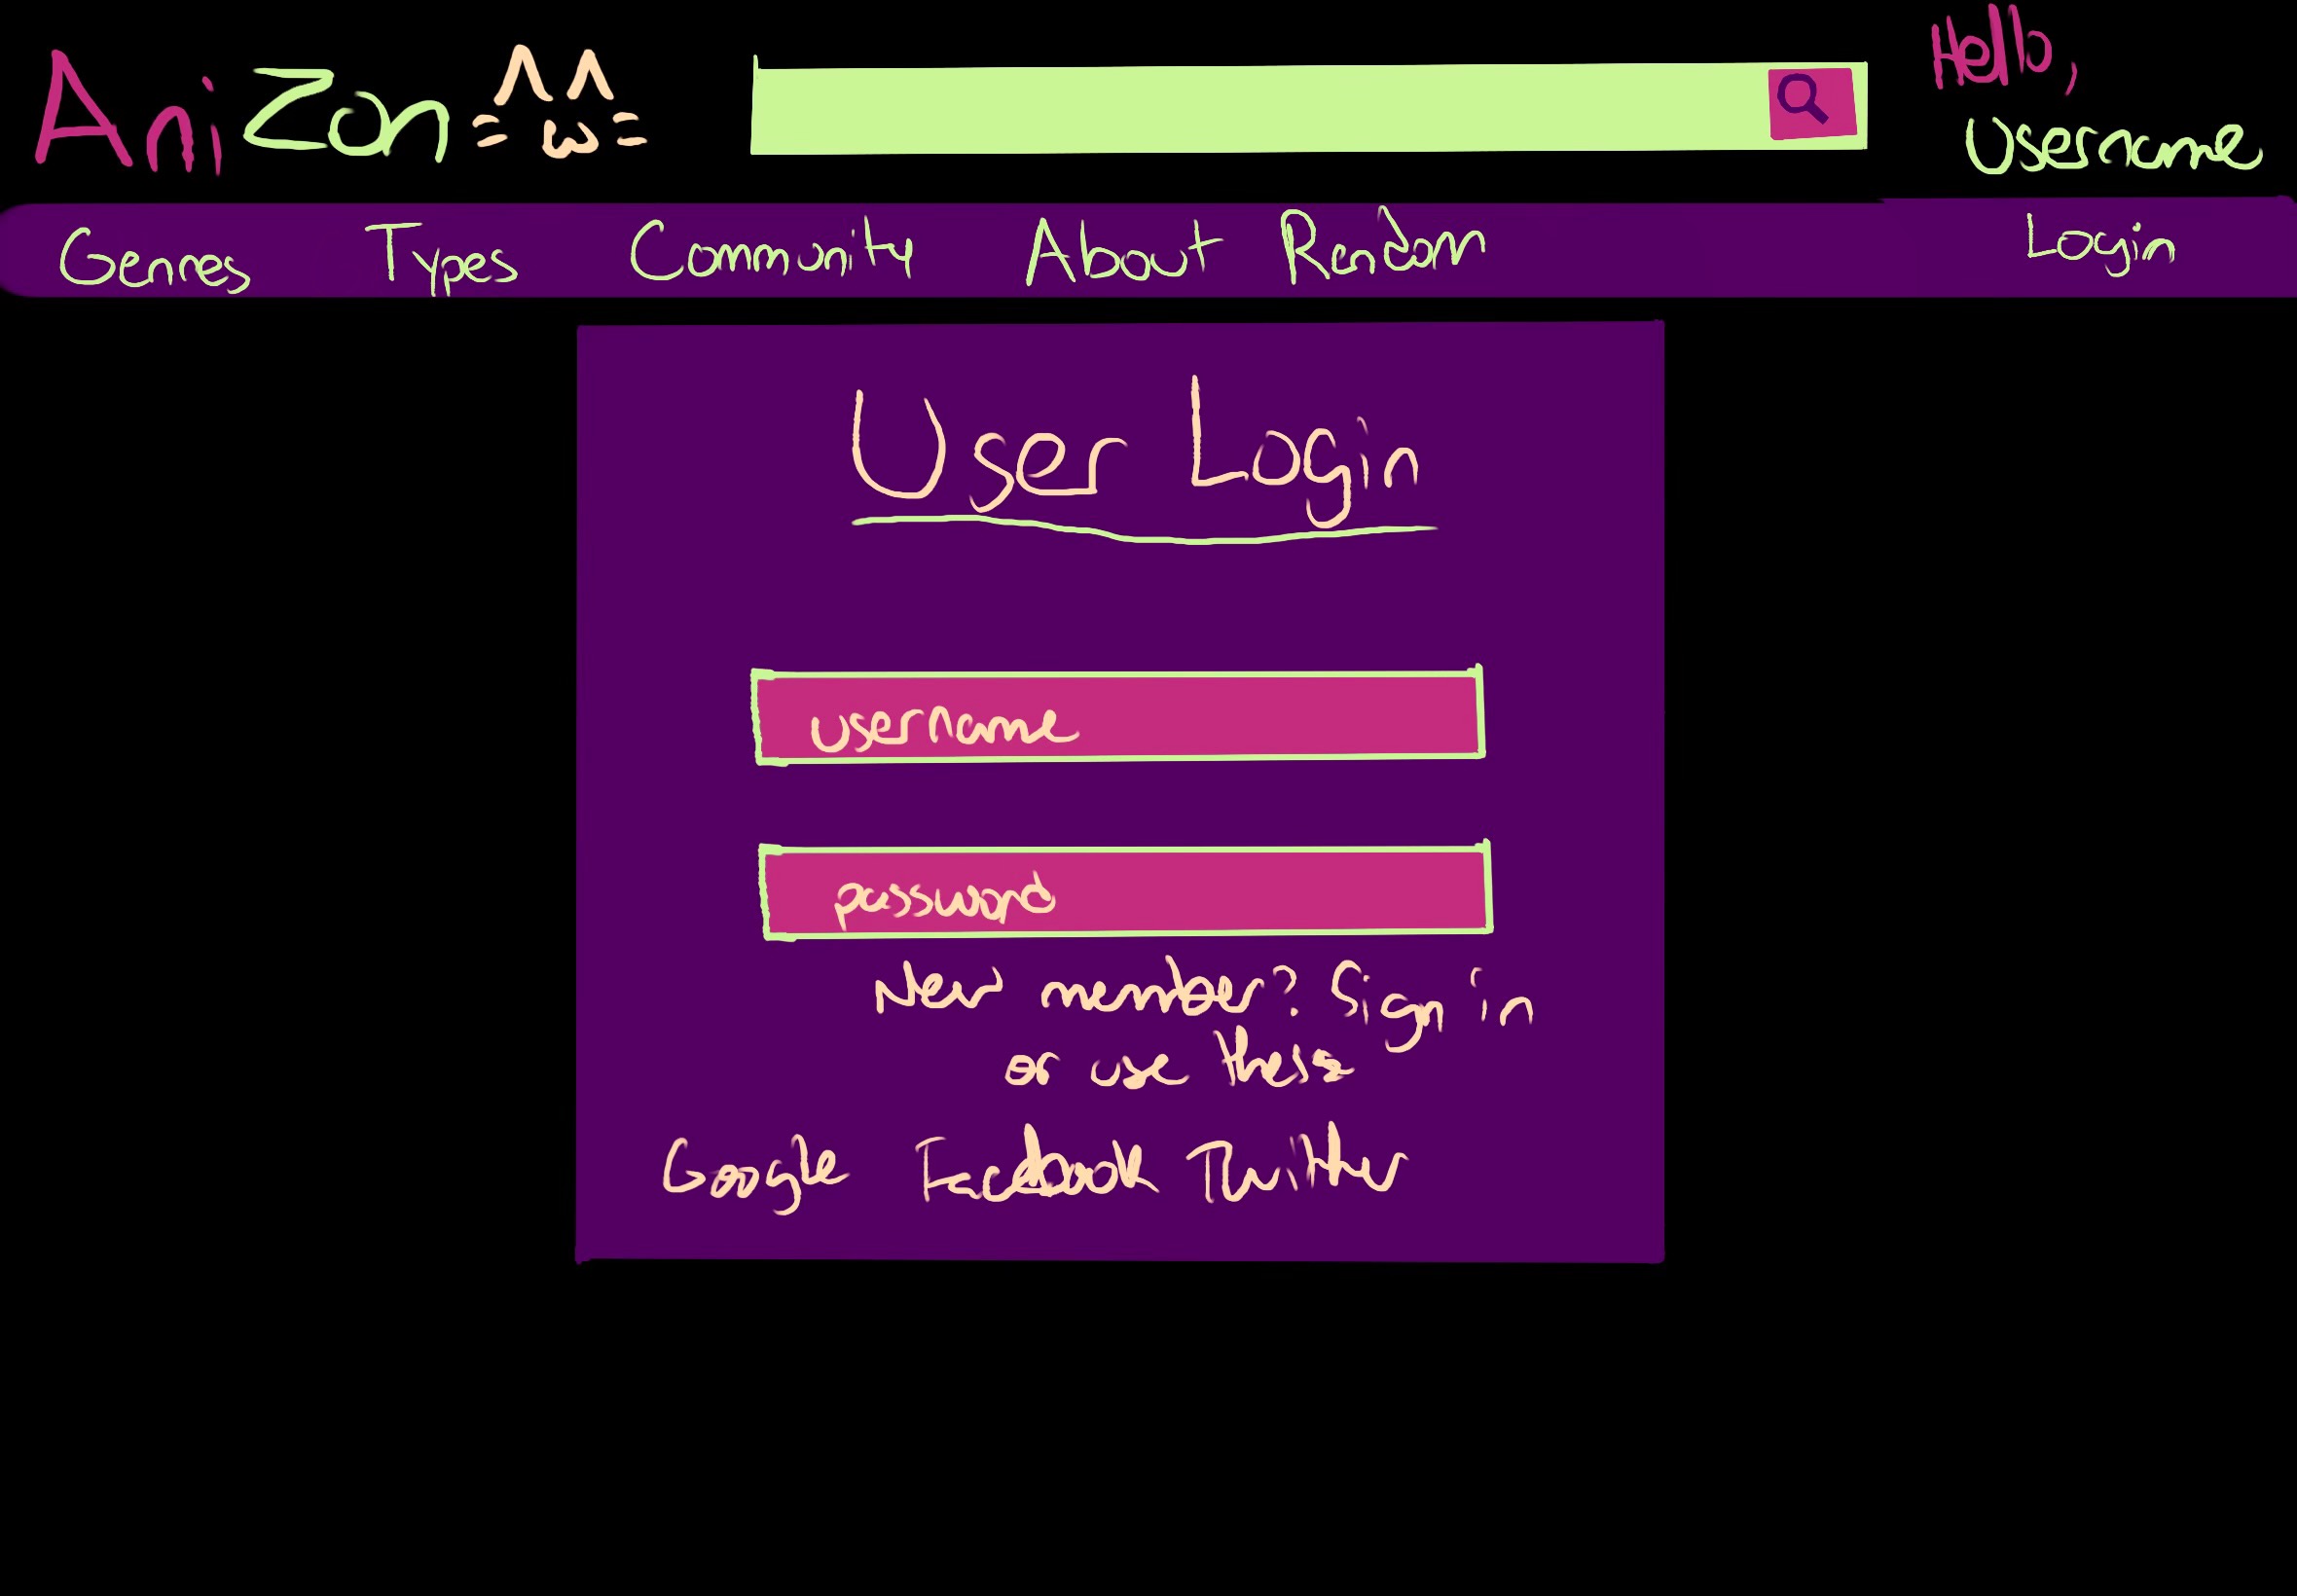 AniZon
Hello,
Username
Genres Types Community About Random Login
User Login
username
password
New member? Sign in
or use this
Google Facebook Twitter